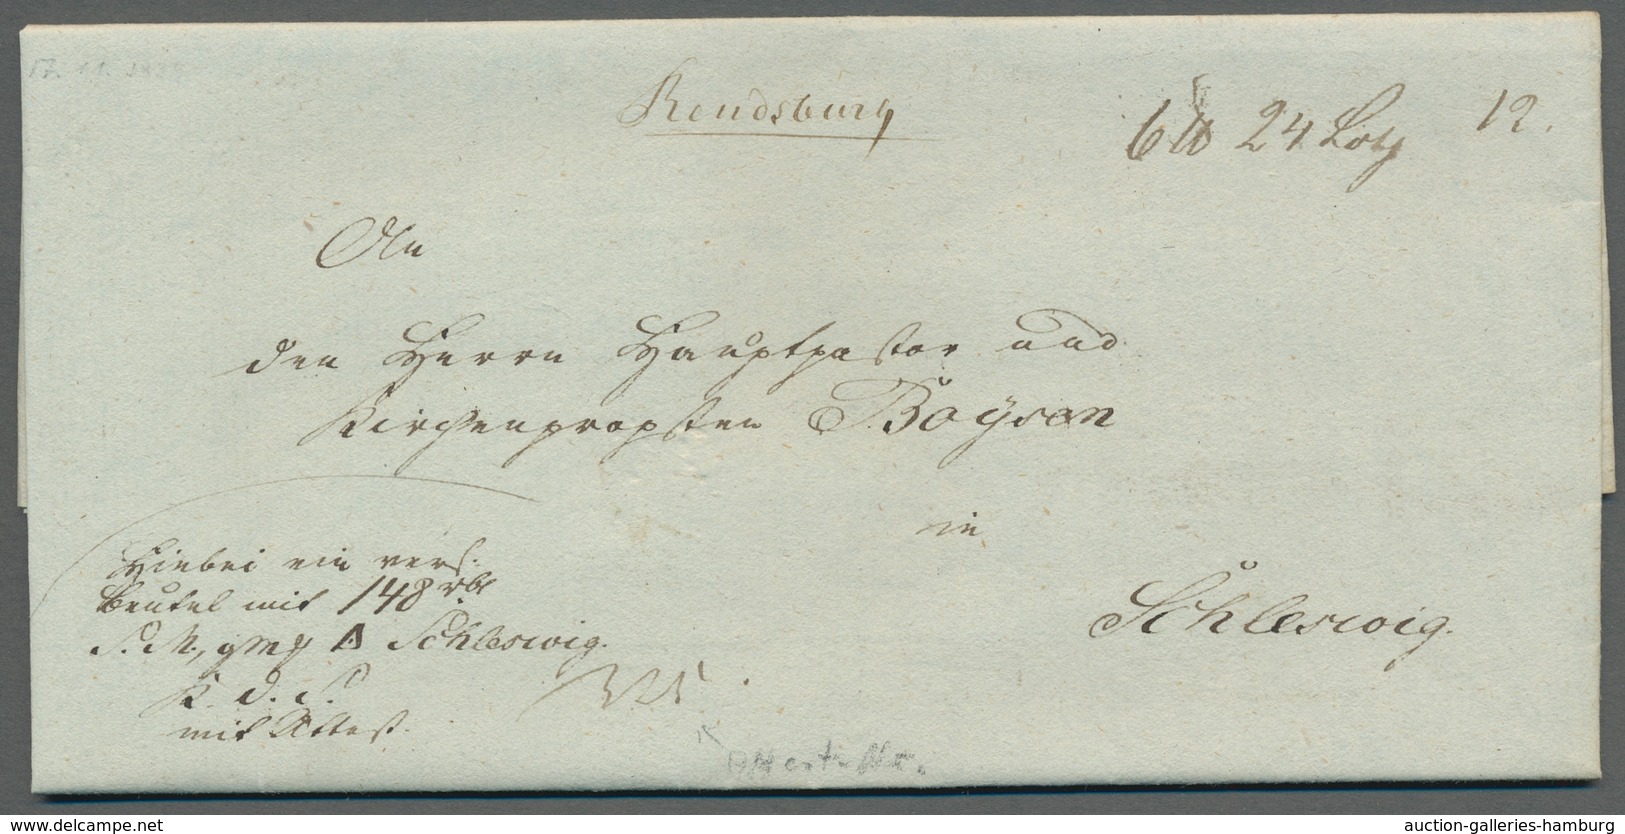 17. 11. 1835
Rendsburg
6 ℔ 24 Loth 12.
An
den Herrn Hauptpastor und
Kirchenpropsten Boysen
in
Schleswig.
Hiebei ein vers.
Beutel mit 148 rbt
S. M., gez Schleswig.
K. d. S.
mit Attest.
www.delcampe.net
auction-galleries-hamburg